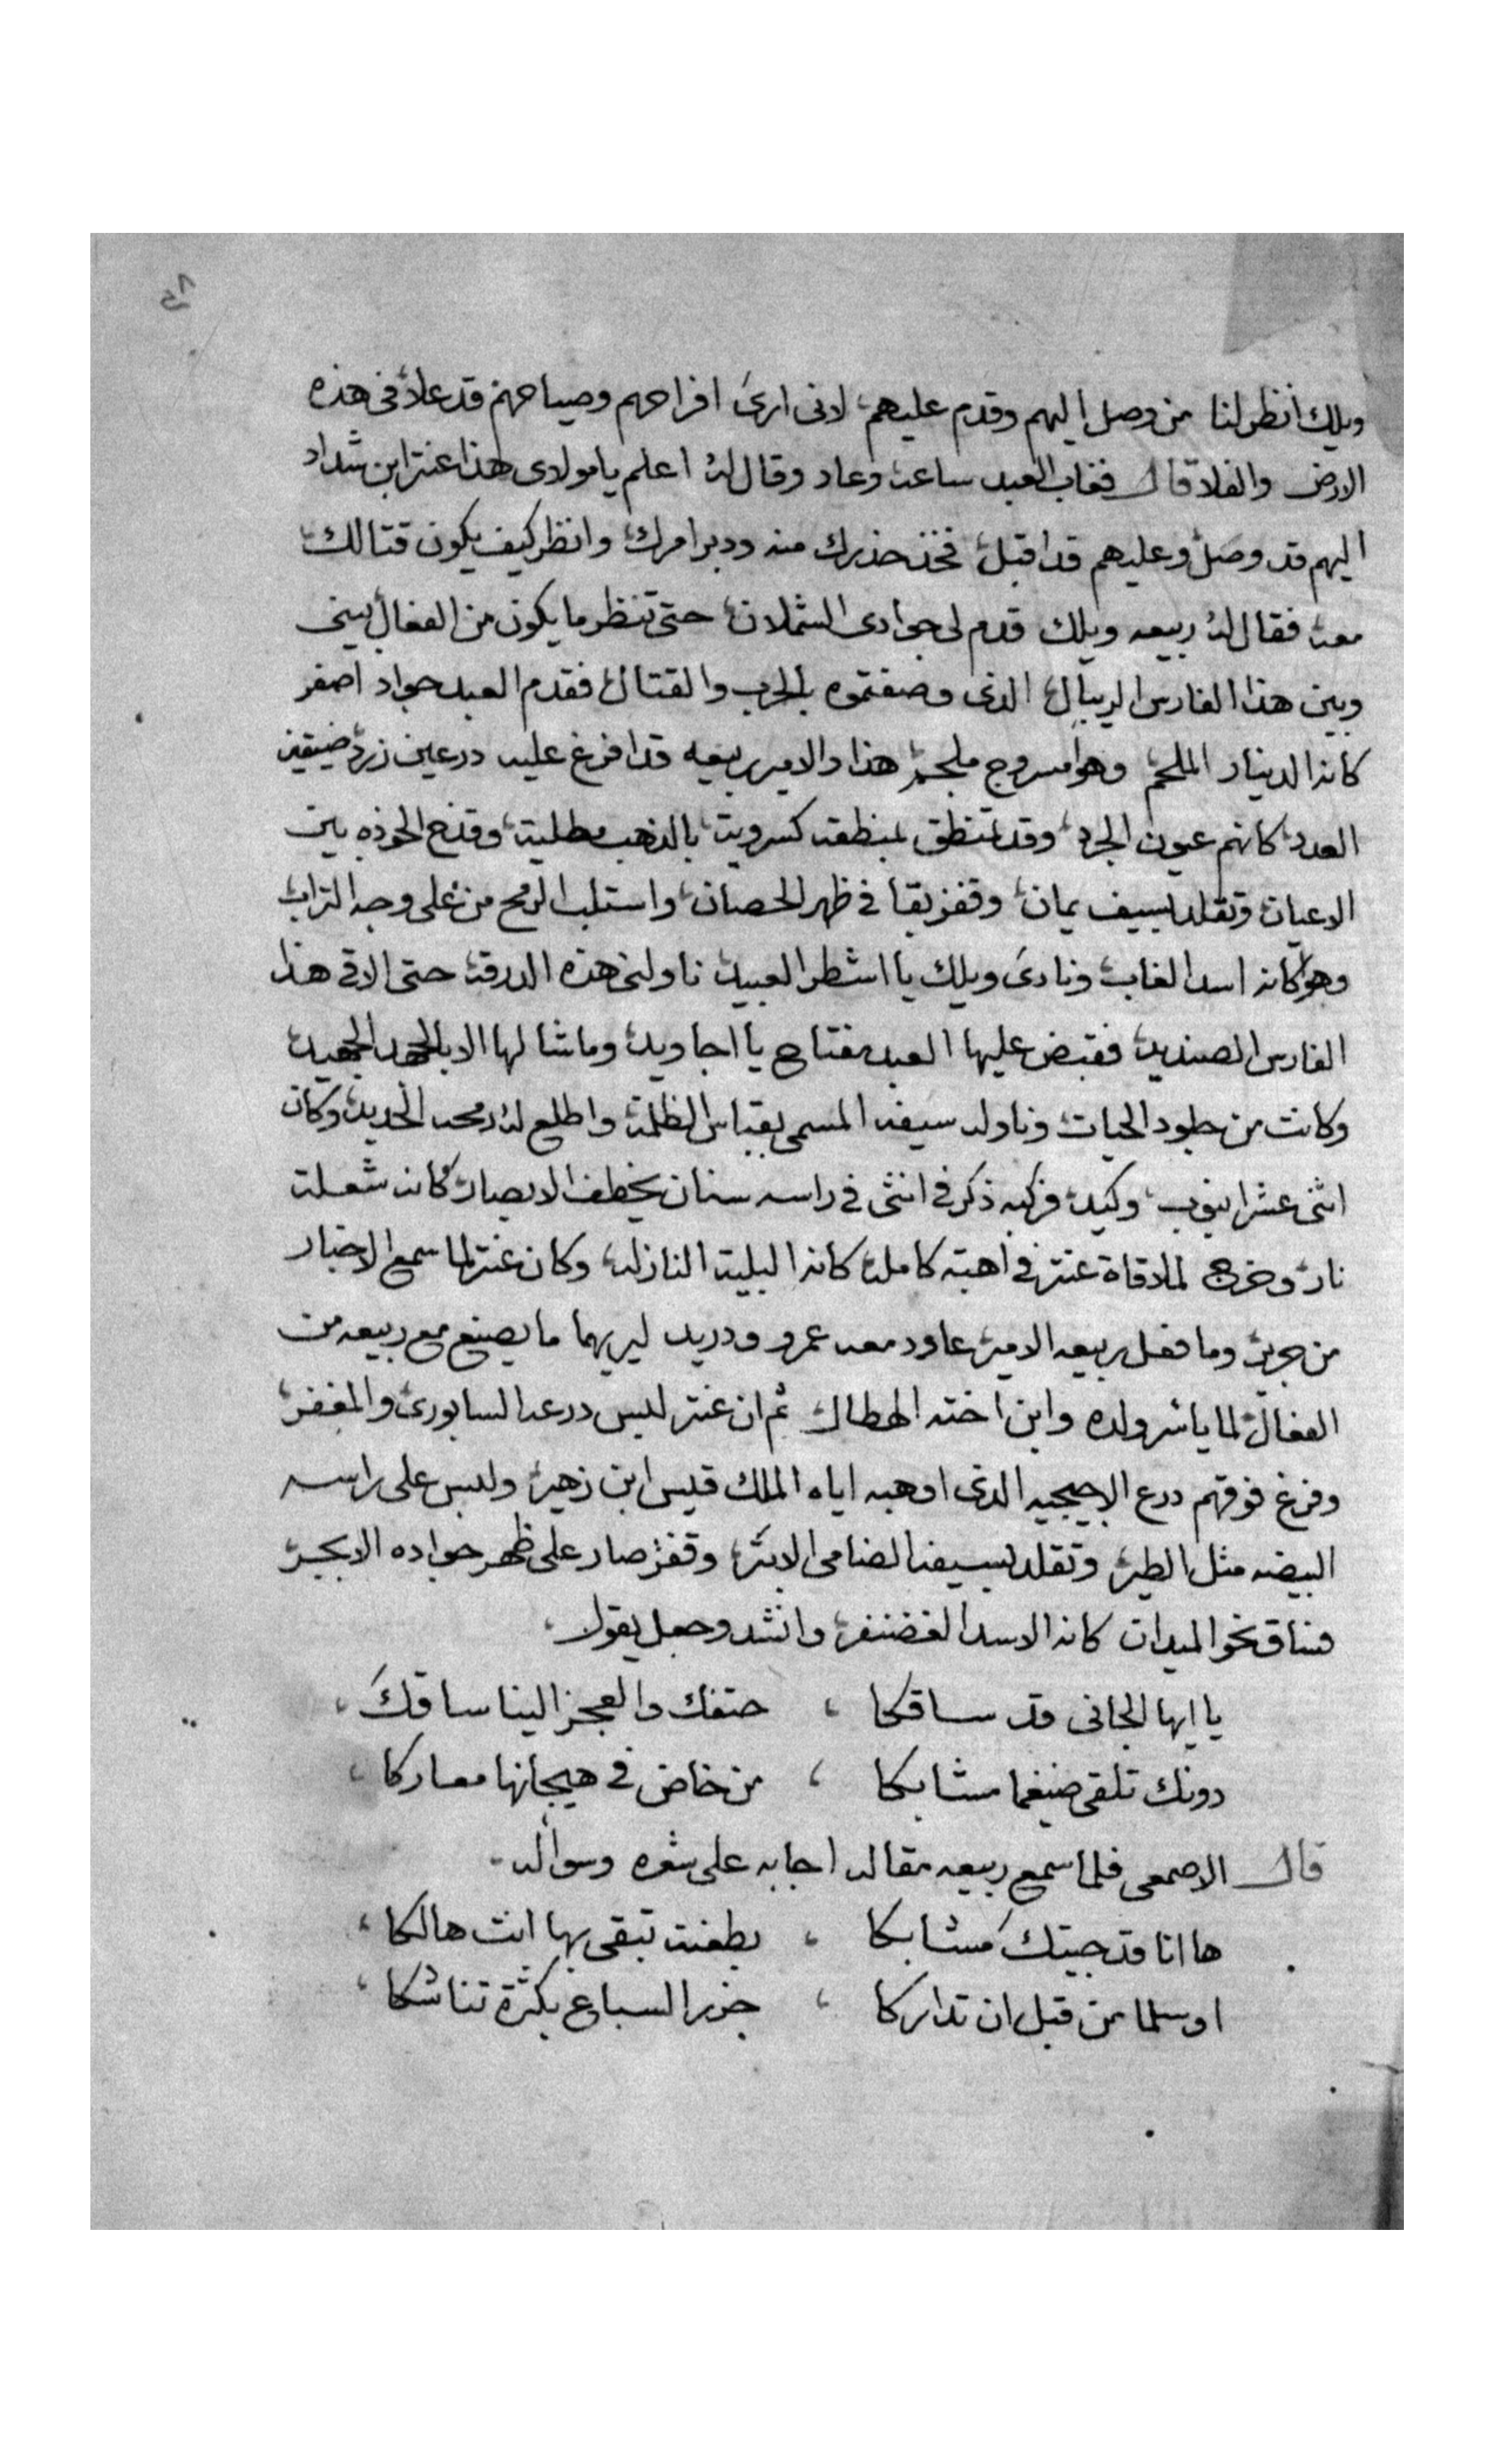 ٨٥
ويلك انظر لنا من وصل اليهم وقدم عليهم، لانى ارى افراحهم وصياحهم قد علا فى هذه
الارض والفلا قال فغاب العبد ساعه وعاد وقال له اعلم يا مولاى هذا عنتر ابن شداد
اليهم قد وصل وعليهم قد اقبل، فخذ حذرك منه ودبر امرك، وانظر كيف يكون قتالك،
معه فقال له ربيعه ويلك قدم لى جوادى الشملان، حتى تنظر ما يكون من الفعال بينى
وبين هذا الفارس الريبال، الذى وصفتموه بالحرب والقتال، فقدم العبد جواد اصفر
كانه الدينار الملحم، وهو مسروج ملجم، هذا والامير ربيعه قد افرغ عليه درعين زرد ضيقين
العدد، كانهم عيون الجرد، وقد تمنطق بمنطقه كسرويه، بالذهب مطليه، وقدح الخوذه بين
الاعيان، وتقلد بسيف يمان، وقفز بقا فى ظهر الحصان، واستلب الرمح من على وجه التراب،
وهو كانه اسد الغاب، ونادى ويلك يا اشطر العبيد، ناولنى هذه الدرقه حتى الاقى هذا
الفارس الصنديد، فقبض عليها العبد مفتاح يا اجاويد، وما شالها الا بالجهد الجهيد،
وكانت من جلود الحيات، وناوله سيفه المسمى بقباس الظلمه واطلع له رمحه الحديد، وكان
اثنى عشر انبوب، وكيد، مركبه ذكر فى انثى فى راسه سنان يخطف الابصار، كانه شعلة
نار، وخرج لملاقاة عنتر فى اهبته كامله، كانه البليه النازله، وكان عنتر لما سمع الاخبار
من جرير، وما فعل ربيعه الامير، عاود معه عمرو ودريد ليريهما ما يصنع مع ربيعه من
الفعال، لما ياسر ولده وابن اخته الهطال ثم ان عنتر لبس درعه السابورى، والمغفر،
وفرغ فوقهم درع الاحيحيه الذى اوهبه اياه الملك قيس ابن زهير، ولبس على راسه
البيضه مثل الطير، وتقلد بسيفه الضامى الابتر، وقفز صار على ظهر جواده الابجر،
وساق نحو الميدان كانه الاسد الغضنفر، وانشد وجعل يقول،
يا ايها الجانى قد ساقكا ، حتفك والعجز الينا ساقك،
دونك تلقى ضيغما مشابكا ، من خاض فى هيجانها معاركا ،
قال الاصمعى فلما سمع ربيعه مقاله اجابه على شعره وسواله.
ها انا قد جيتك مشابكا ، بطعنة تبقى بها انت هالكا ،
او سلما من قبل ان تداركا ، جزر السباع بكثرة تناشكا ،